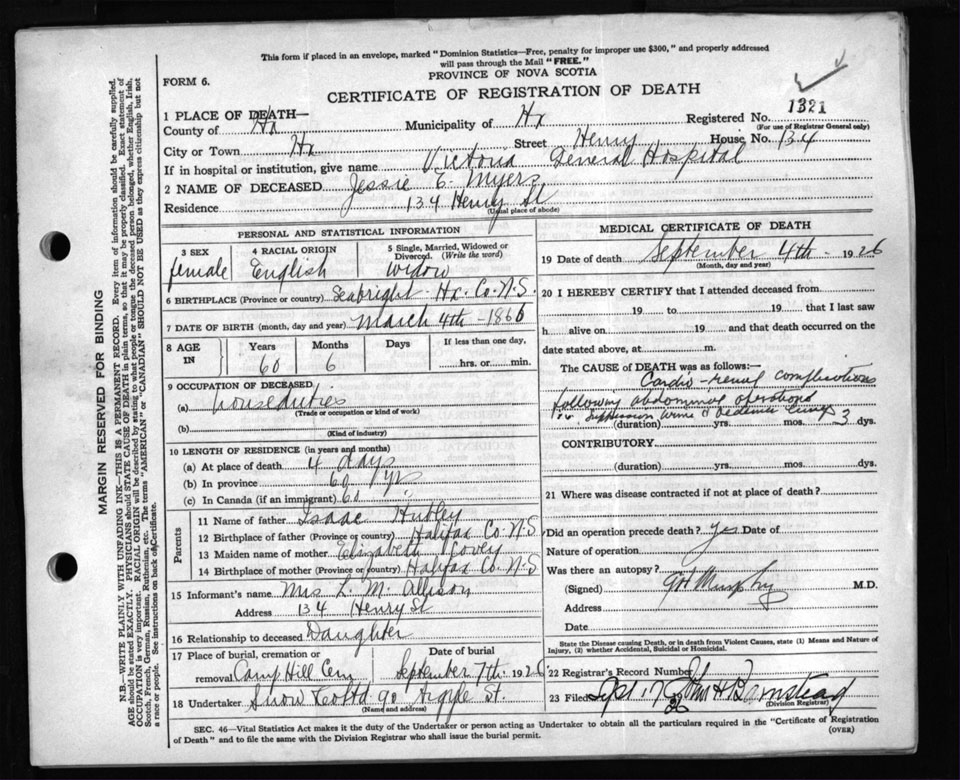 This form if placed in an envelope, marked "Dominion Statistics—Free, penalty for improper use $300," and properly addressed
will pass through the Mail "FREE."
FORM 6.
PROVINCE OF NOVA SCOTIA
CERTIFICATE OF REGISTRATION OF DEATH
1 PLACE OF DEATH—
Registered No. 1321
(For use of Registrar General only)
County of Hx Municipality of Hx
City or Town Hx Street Henry House No. 134
If in hospital or institution, give name Victoria General Hospital
2 NAME OF DECEASED Jessie E. Myers
Residence 134 Henry St
(Usual place of abode)
PERSONAL AND STATISTICAL INFORMATION
3 SEX female
4 RACIAL ORIGIN English
5 Single, Married, Widowed or Divorced. (Write the word) widow
6 BIRTHPLACE (Province or country) Seabright Hx. Co. N.S.
7 DATE OF BIRTH (month, day and year) March 4th - 1866
8 AGE IN
Years 60
Months 6
Days
If less than one day, hrs. or min.
9 OCCUPATION OF DECEASED
(a) house duties
(Trade or occupation or kind of work)
(b)
(Kind of industry)
10 LENGTH OF RESIDENCE (in years and months)
(a) At place of death 4 days
(b) In province 60 yrs
(c) In Canada (if an immigrant) 60
Parents
11 Name of father Isaac Hubley
12 Birthplace of father (Province or country) Halifax Co. N.S.
13 Maiden name of mother Elizabeth Covey
14 Birthplace of mother (Province or country) Halifax Co. N.S
15 Informant's name Mrs L. M. Allison
Address 134 Henry St
16 Relationship to deceased Daughter
17 Place of burial, cremation or removal Camp Hill Cem
Date of burial September 7th 1926
18 Undertaker Snow & Co Ltd 90 Argyle St.
(Name and address)
MEDICAL CERTIFICATE OF DEATH
19 Date of death September 4th - 1926
(Month, day and year)
20 I HEREBY CERTIFY that I attended deceased from
19 to 19 that I last saw
h alive on 19 and that death occurred on the
date stated above, at m.
The CAUSE of DEATH was as follows:—
Cardio-renal complications
following abdominal operations
suppression urine & oedema lungs
(duration) yrs. mos. 3 dys.
CONTRIBUTORY
(duration) yrs. mos. dys.
21 Where was disease contracted if not at place of death?
Did an operation precede death? yes Date of
Nature of operation
Was there an autopsy?
(Signed) Murphy M.D.
Address
Date
State the Disease causing Death, or in death from Violent Causes, state (1) Means and Nature of Injury, (2) whether Accidental, Suicidal or Homicidal.
22 Registrar's Record Number
23 Filed Sept 17 26 John H Barnstead
(Division Registrar)
SEC. 46—Vital Statistics Act makes it the duty of the Undertaker or person acting as Undertaker to obtain all the particulars required in the "Certificate of Registration
of Death" and to file the same with the Division Registrar who shall issue the burial permit.
(OVER)
MARGIN RESERVED FOR BINDING
N.B.—WRITE PLAINLY WITH UNFADING INK—THIS IS A PERMANENT RECORD. Every item of information should be carefully supplied.
AGE should be stated EXACTLY. PHYSICIANS should STATE CAUSE OF DEATH in plain terms, so that it may be properly classified. Exact statement of
OCCUPATION is very important. RACIAL ORIGIN will be described by stating to what people or tongue the deceased person belonged, whether English, Irish,
Scotch, French, German, Russian, Ruthenian, etc. The terms "AMERICAN" or "CANADIAN" SHOULD NOT BE USED as they express citizenship but not
a race or people. See instructions on back of Certificate.